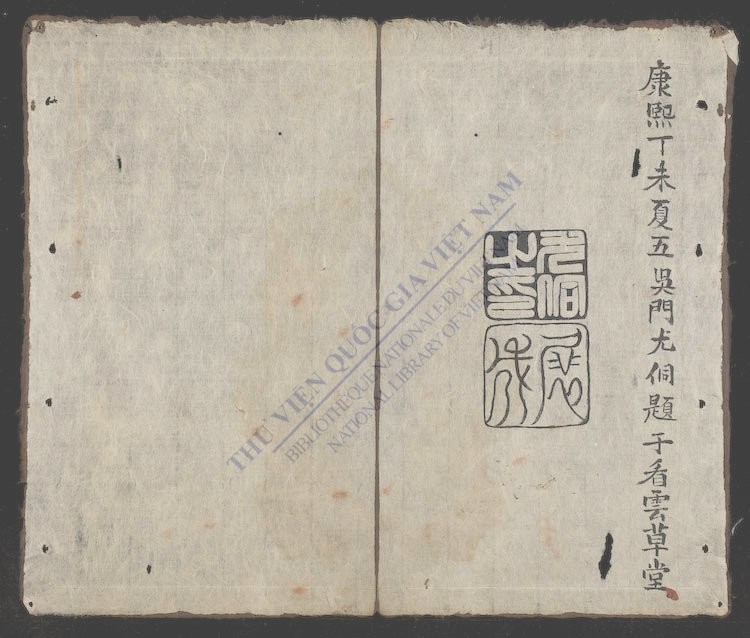 康熙丁未夏五吳門尤侗題于看雲草堂
尤侗
之印
展
成
THƯ VIỆN QUỐC GIA VIỆT NAM
BIBLIOTHÈQUE NATIONALE DU VIETNAM
NATIONAL LIBRARY OF VIETNAM